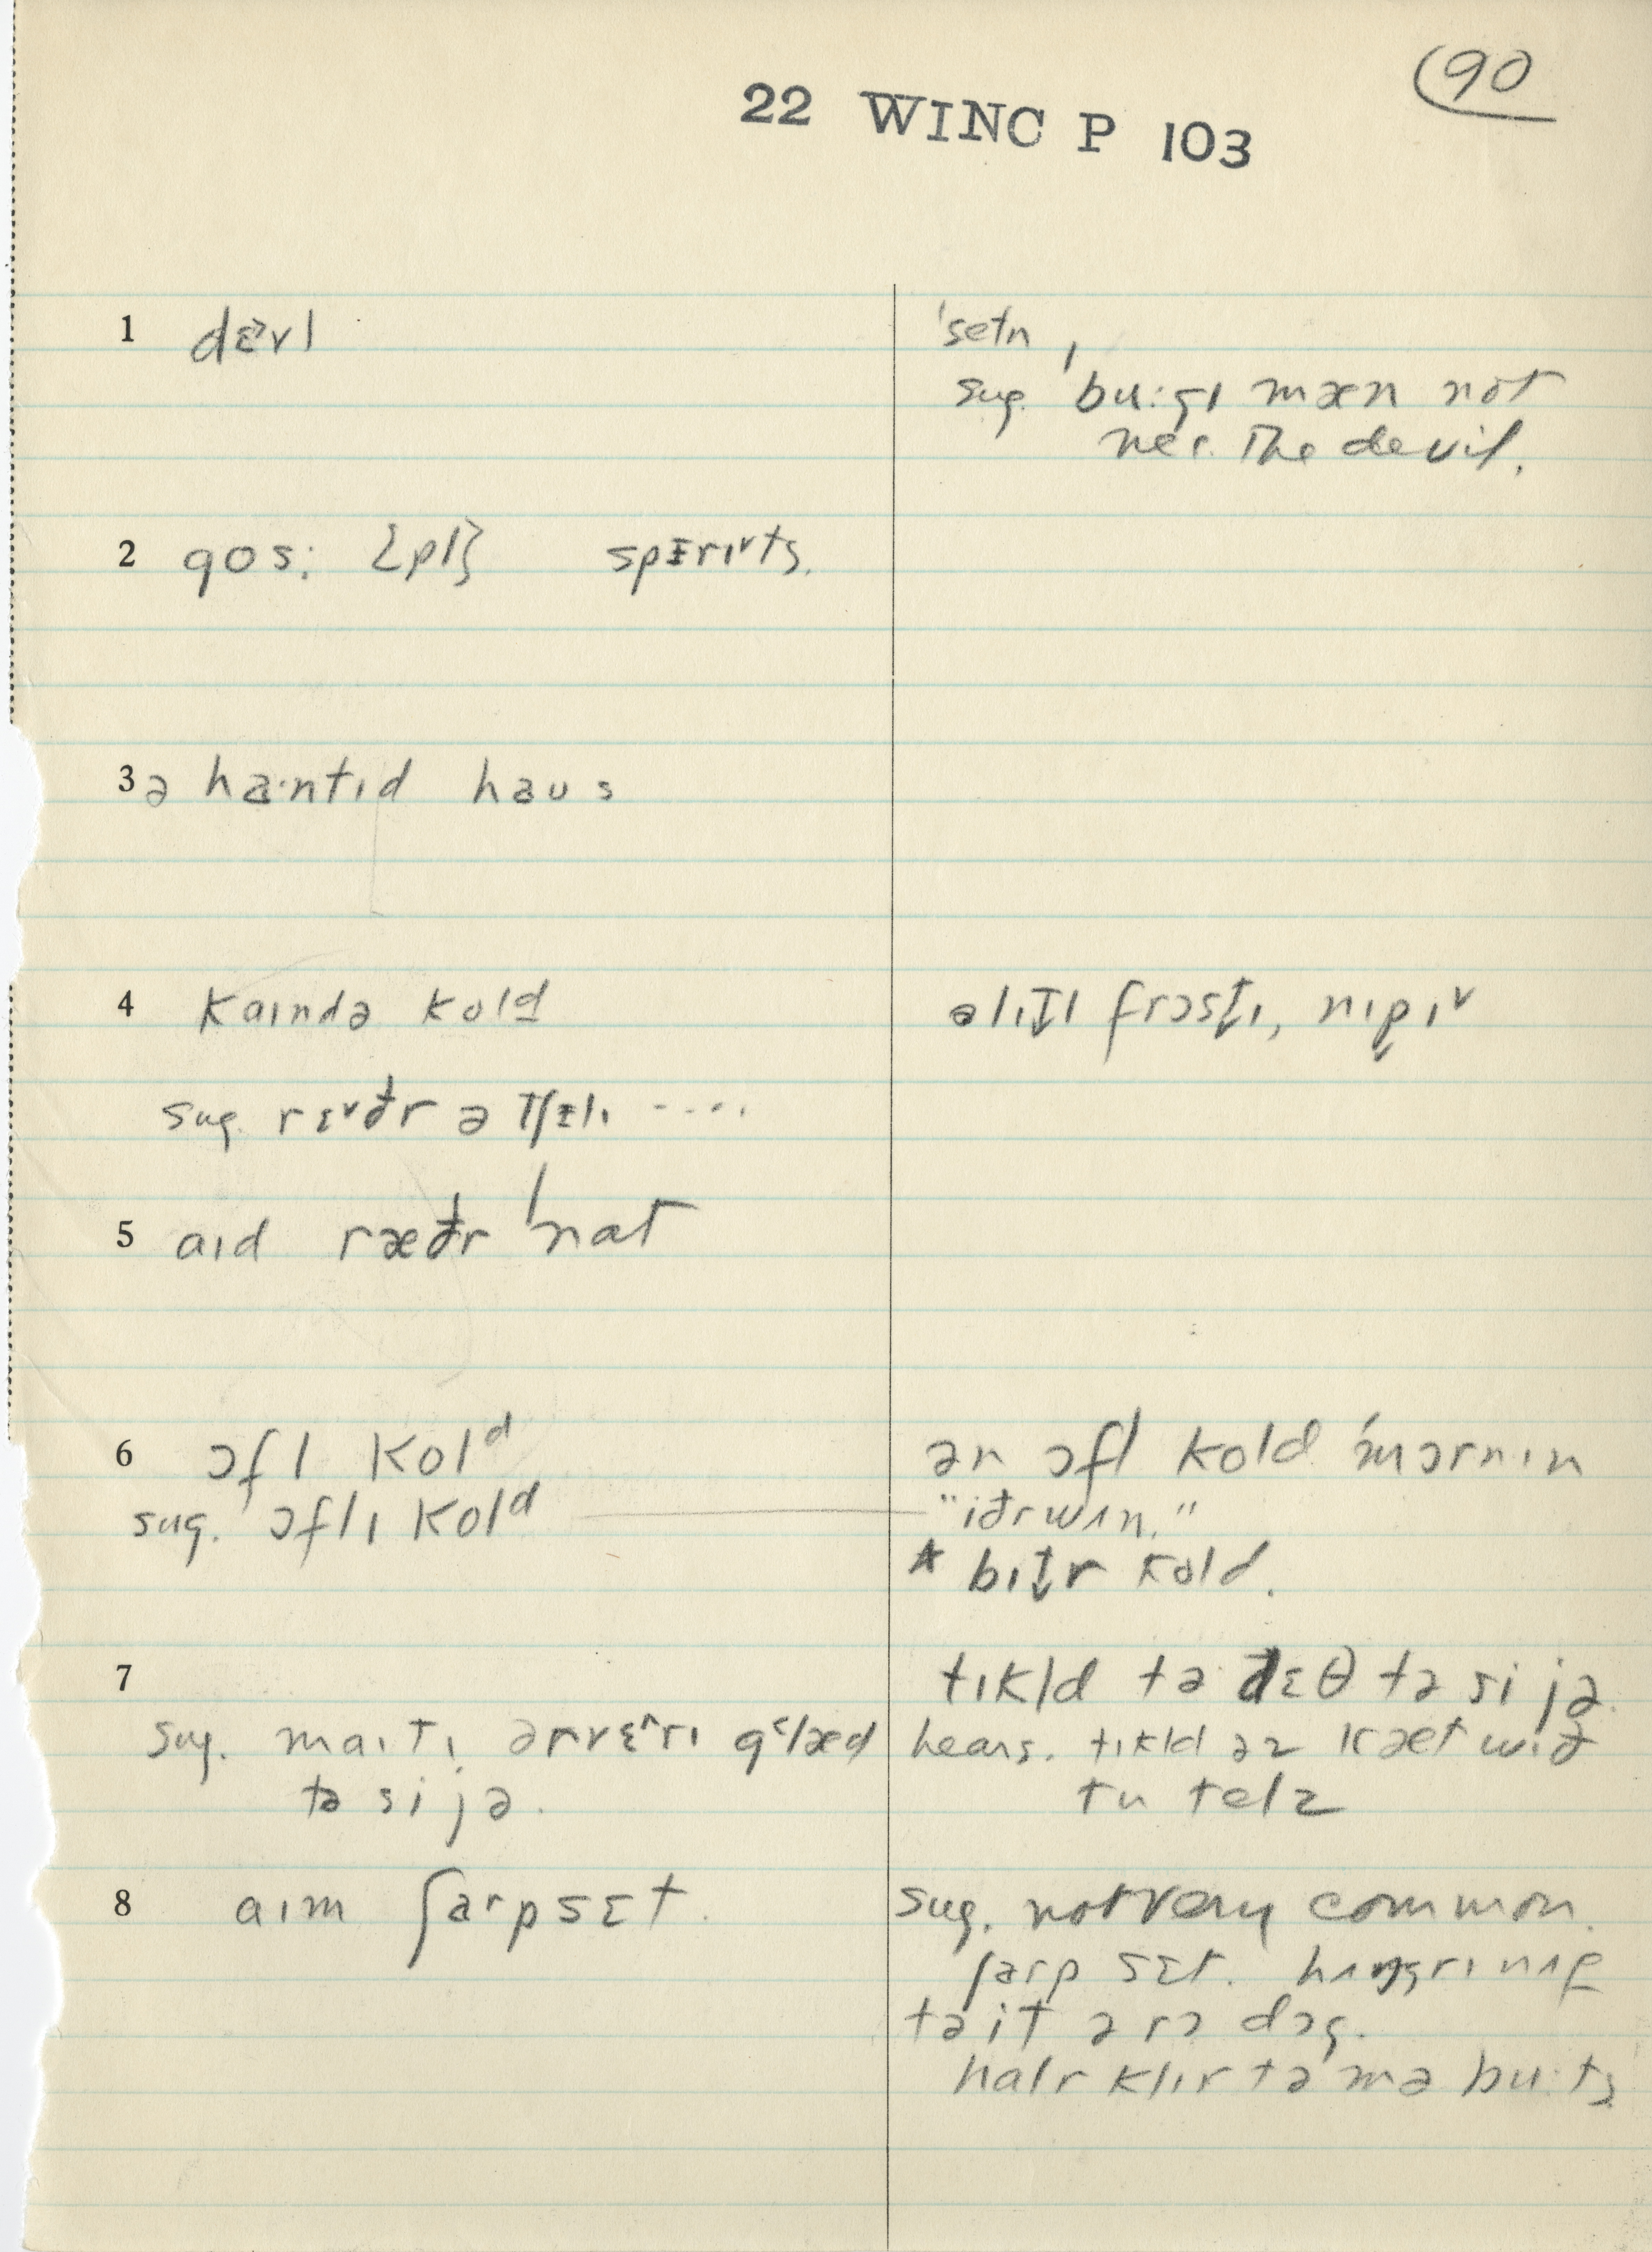 90
22 WINC P 103
1 dɛvl
ˈsetn̩
sug. ˈbu:gɪ mæn not
nec. The devil.
2 gos: {pl} spɪrɪts.
3 ə ha·ntɪd haus
4 kaɪndə kold
əlɪtl frɔstɪ, nɪpɪ
sug. rɛðr ə tʃɪlɪ ....
5 aɪd ræðr ˈnat
6 ɔfl kolᵈ
sug. ɔflɪ kolᵈ
ən ɔfl kold ˈmɔrnɪn
"iðr wʌn."
* bɪtr kold.
7 tɪkld tə dɛθ tə si jə
sug. maɪtɪ ərvɛrɪ glæd
tə si jə.
hears. tɪkld əz kæt wɪð
tu telz
8 aɪm ʃarpsɛt.
sug. not very common.
ʃarp sɛt. hʌŋgrɪ nʌf
tə it ə rɔ dɔg.
halr klɪr tə mə bu:ts